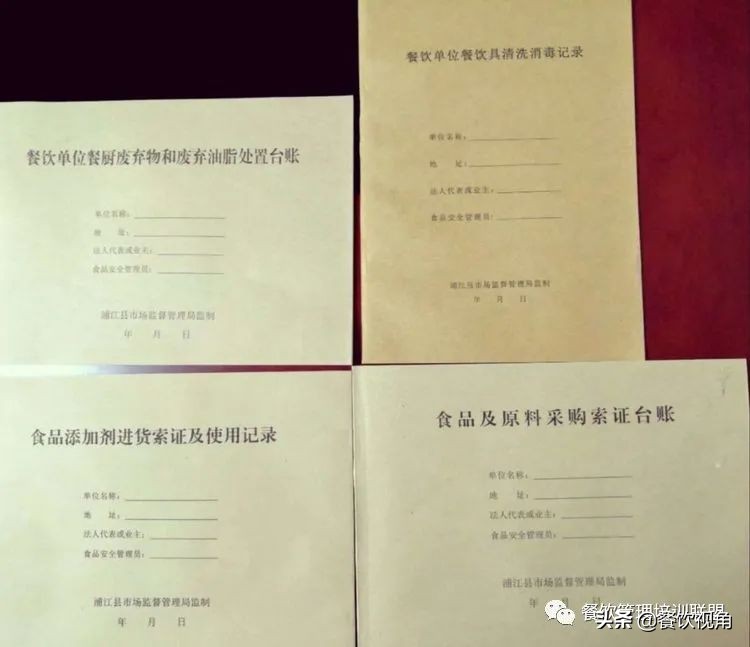 餐饮单位餐厨废弃物和废弃油脂处置台账
单位名称：
地 址：
法人代表或业主：
食品安全管理员：
浦江县市场监督管理局监制
年 月 日
餐饮单位餐饮具清洗消毒记录
单位名称：
地 址：
法人代表或业主：
食品安全管理员：
浦江县市场监督管理局监制
年 月 日
食品添加剂进货索证及使用记录
单位名称：
地 址：
法人代表或业主：
食品安全管理员：
浦江县市场监督管理局监制
年 月 日
食品及原料采购索证台账
单位名称：
地 址：
法人代表或业主：
食品安全管理员：
浦江县市场监督管理局监制
年 月 日
餐饮管理培训联盟
头条 @餐饮视角